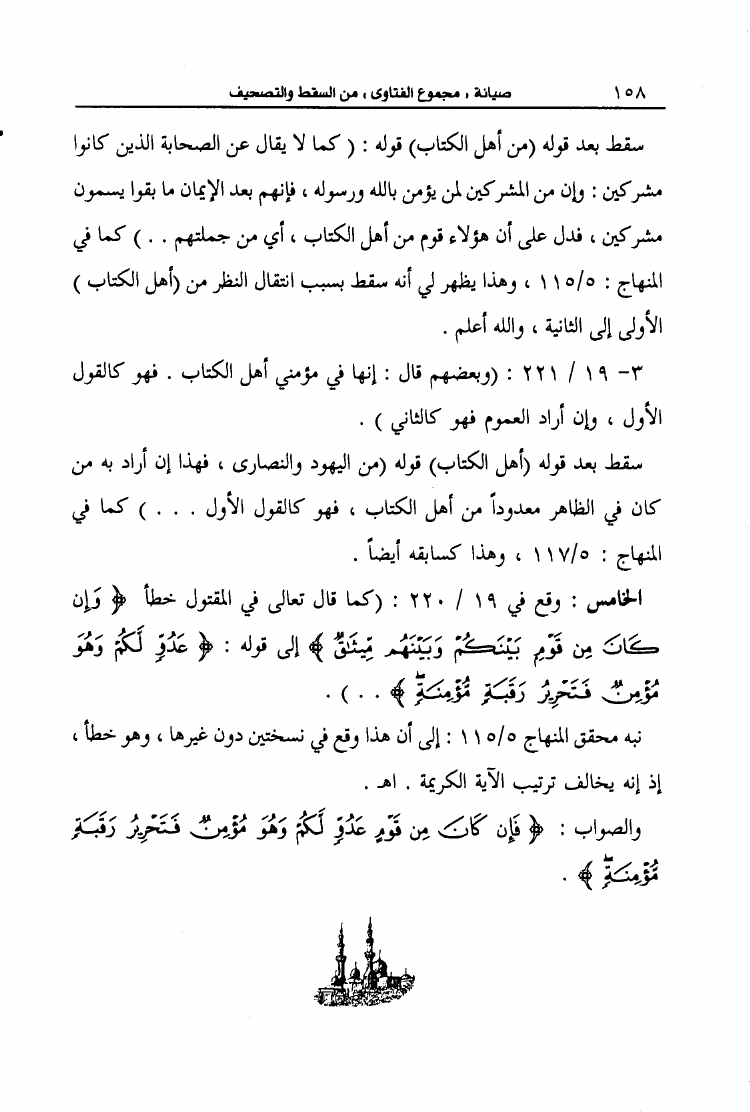 ١٥٨ صيانة « مجموع الفتاوى » من السقط والتصحيف
سقط بعد قوله (من أهل الكتاب) قوله : ( كما لا يقال عن الصحابة الذين كانوا
مشركين : وإن من المشركين لمن يؤمن بالله ورسوله ، فإنهم بعد الإيمان ما بقوا يسمون
مشركين ، فدل على أن هؤلاء قوم من أهل الكتاب ، أي من جملتهم . . ) كما في
المنهاج : ١١٥/٥ ، وهذا يظهر لي أنه سقط بسبب انتقال النظر من (أهل الكتاب )
الأولى إلى الثانية ، والله أعلم .
٣- ١٩ / ٢٢١ : (وبعضهم قال : إنها في مؤمني أهل الكتاب . فهو كالقول
الأول ، وإن أراد العموم فهو كالثاني ) .
سقط بعد قوله (أهل الكتاب) قوله (من اليهود والنصارى ، فهذا إن أراد به من
كان في الظاهر معدوداً من أهل الكتاب ، فهو كالقول الأول . . . ) كما في
المنهاج : ١١٧/٥ ، وهذا كسابقه أيضاً .
الخامس : وقع في ١٩ / ٢٢٠ : (كما قال تعالى في المقتول خطأ ﴿ وَإِن
كَانَ مِن قَوْمٍ بَيْنَكُمْ وَبَيْنَهُم مِّيثَٰقٌ ﴾ إلى قوله : ﴿ عَدُوٍّ لَّكُمْ وَهُوَ
مُؤْمِنٌ فَتَحْرِيرُ رَقَبَةٍ مُّؤْمِنَةٍ ﴾ . . ) .
نبه محقق المنهاج ١١٥/٥ : إلى أن هذا وقع في نسختين دون غيرها ، وهو خطأ ،
إذ إنه يخالف ترتيب الآية الكريمة . اهـ .
والصواب : ﴿ فَإِن كَانَ مِن قَوْمٍ عَدُوٍّ لَّكُمْ وَهُوَ مُؤْمِنٌ فَتَحْرِيرُ رَقَبَةٍ
مُّؤْمِنَةٍ ﴾ .